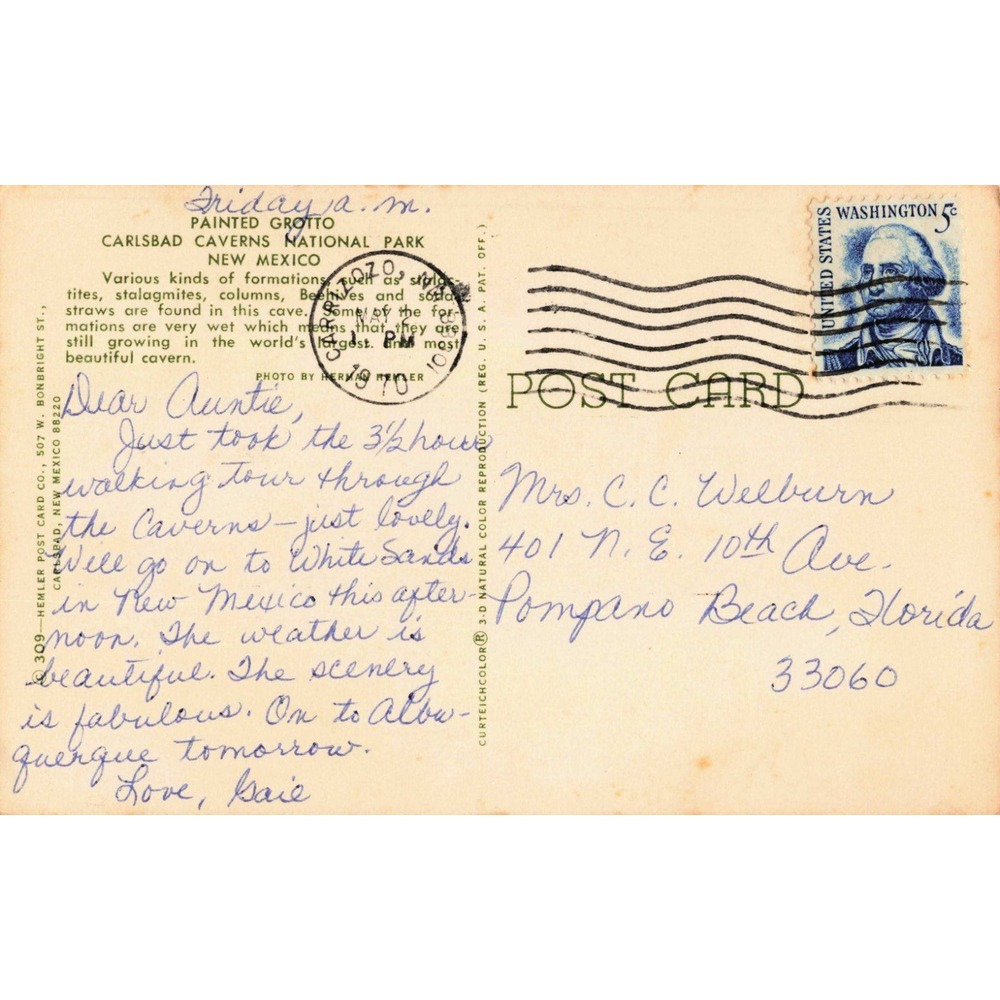 Friday a.m.
PAINTED GROTTO
CARLSBAD CAVERNS NATIONAL PARK
NEW MEXICO
Various kinds of formations such as stalac-
tites, stalagmites, columns, Beehives and soda
straws are found in this cave. Some of the for-
mations are very wet which means that they are
still growing in the world's largest. and most
beautiful cavern.
PHOTO BY HERMAN HEMLER
Dear Auntie,
Just took the 3½ hour
walking tour through
the Caverns - just lovely.
Will go on to White Sands
in New Mexico this after-
noon. The weather is
beautiful. The scenery
is fabulous. On to Albu-
querque tomorrow.
Love, Gaie
© 309—HEMLER POST CARD CO., 507 W. BONBRIGHT ST.,
CARLSBAD, NEW MEXICO 88220
CURTEICHCOLOR® 3-D NATURAL COLOR REPRODUCTION (REG. U. S. A. PAT. OFF.)
CARRIZOZO, N.M. 88301
MAY 2
1 PM
1970
UNITED STATES
WASHINGTON 5c
POST CARD
Mrs. C. C. Welburn
401 N. E. 10th Ave.
Pompano Beach, Florida
33060